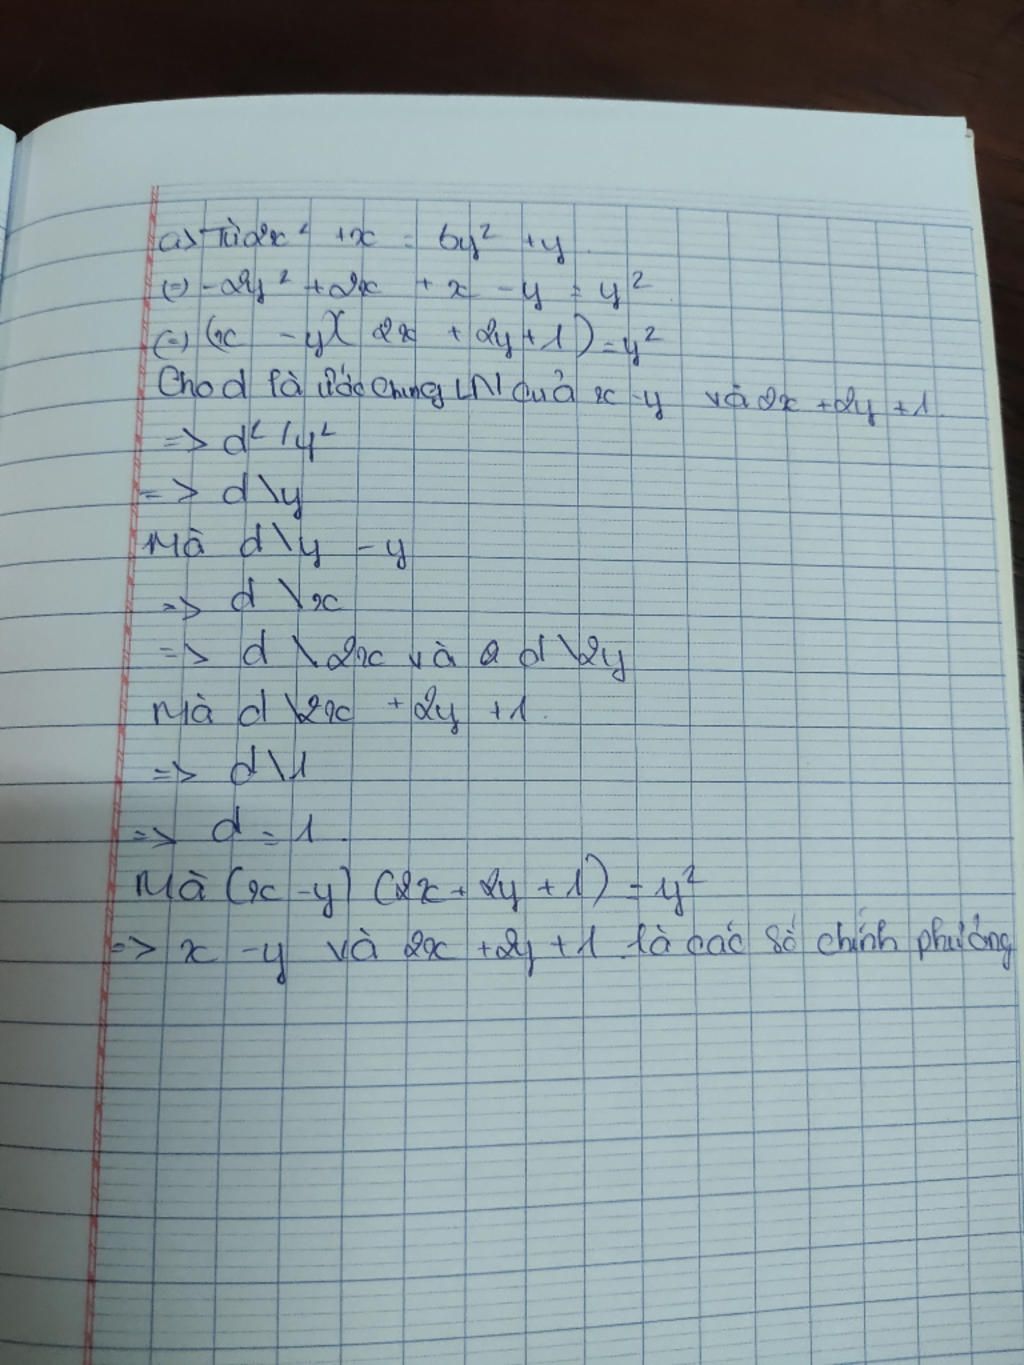 a) Từ 2x² + x = 6y² + y
(=) -2y² + 2x + x - y = y²
(=) (x - y)(2x + 2y + 1) = y²
Cho d là ước chung LN quả x - y và 2x + 2y + 1
=> d² / y²
=> d \ y
Mà d \ y - y
=> d \ x
=> d \ 2x và d \ 2y
Mà d \ 2x + 2y + 1.
=> d \ 1
=> d = 1.
Mà (x - y) (2x + 2y + 1) = y²
=> x - y và 2x + 2y + 1 là các số chính phương